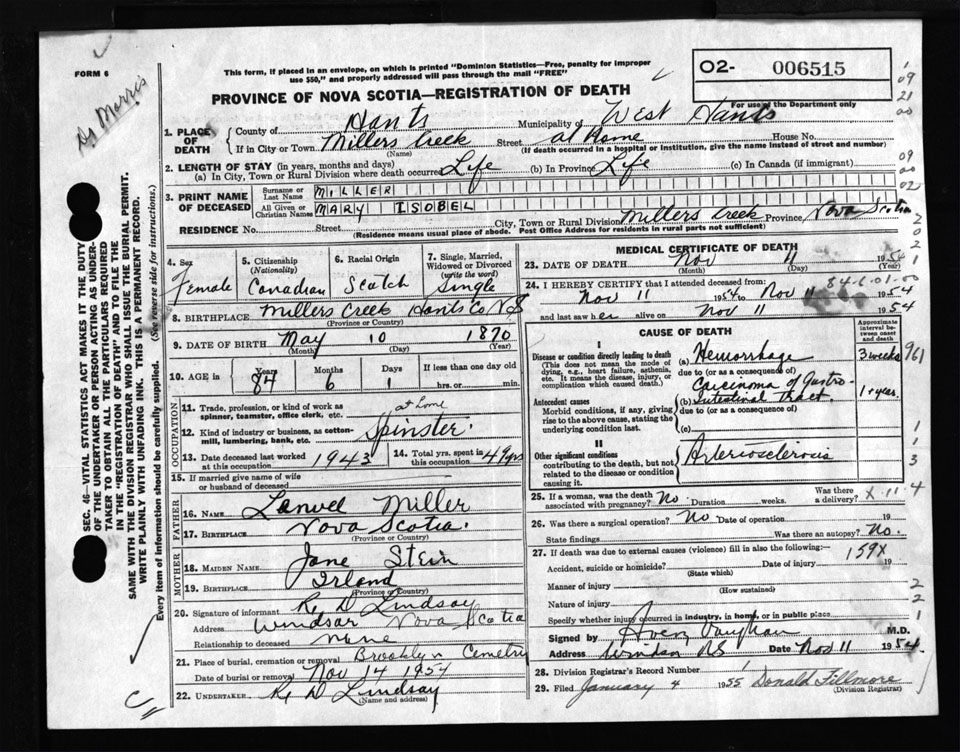 FORM 6
This form, if placed in an envelope, on which is printed "Dominion Statistics—Free, penalty for improper
use $50," and properly addressed will pass through the mail "FREE"
O2- 006515
For use of the Department only
Ds Morris
PROVINCE OF NOVA SCOTIA—REGISTRATION OF DEATH
1. PLACE OF DEATH
County of Hants Municipality of West Hants
If in City or Town Millers Creek Street at Home House No.
(Name) (If death occurred in a hospital or institution, give the name instead of street and number)
2. LENGTH OF STAY (in years, months and days)
(a) In City, Town or Rural Division where death occurred Life (b) In Province Life (c) In Canada (if immigrant)
3. PRINT NAME OF DECEASED
Surname or Last Name MILLER
All Given or Christian Names MARY ISOBEL
RESIDENCE No. Street City, Town or Rural Division Millers Creek Province, Nova Scotia
(Residence means usual place of abode. Post Office Address for residents in rural parts not sufficient)
SEC. 46—VITAL STATISTICS ACT MAKES IT THE DUTY
OF THE UNDERTAKER OR PERSON ACTING AS UNDER-
TAKER TO OBTAIN ALL THE PARTICULARS REQUIRED
IN THE "REGISTRATION OF DEATH" AND TO FILE THE
SAME WITH THE DIVISION REGISTRAR WHO SHALL ISSUE THE BURIAL PERMIT.
WRITE PLAINLY WITH UNFADING INK. THIS IS A PERMANENT RECORD.
Every item of information should be carefully supplied. (See reverse side for instructions.)
4. Sex Female
5. Citizenship (Nationality) Canadian
6. Racial Origin Scotch
7. Single, Married, Widowed or Divorced (write the word) Single
8. BIRTHPLACE Millers Creek Hants Co N S
(Province or Country)
9. DATE OF BIRTH May 10 1870
(Month) (Day) (Year)
10. AGE in Years 84 Months 6 Days 1 If less than one day old
hrs. or min.
OCCUPATION
11. Trade, profession, or kind of work as spinner, teamster, office clerk, etc. at home
12. Kind of industry or business, as cotton-mill, lumbering, bank, etc. Spinster
13. Date deceased last worked at this occupation 1943
14. Total yrs. spent in this occupation 49 yrs
15. If married give name of wife or husband of deceased
FATHER
16. NAME Miller
17. BIRTHPLACE Nova Scotia.
(Province or Country)
MOTHER
18. MAIDEN NAME Jane Stein
19. BIRTHPLACE Irland
(Province or Country)
20. Signature of informant R D Lindsay
Address Windsor Nova Scotia
Relationship to deceased none
21. Place of burial, cremation or removal Brooklyn Cemetry
Date of burial or removal Nov 14 1954
22. UNDERTAKER R D Lindsay
(Name and address)
MEDICAL CERTIFICATE OF DEATH
23. DATE OF DEATH Nov 11 1954
(Month) (Day) (Year)
84-6-01-50
24. I HEREBY CERTIFY that I attended deceased from:
Nov 11 1954 to Nov 11 1954
and last saw her alive on Nov 11 1954
CAUSE OF DEATH
Approximate interval between onset and death
I
Disease or condition directly leading to death (a) Hemorrhage 3 weeks
(This does not mean the mode of dying, e.g., heart failure, asthenia, etc. It means the disease, injury, or complication which caused death.)
due to (or as a consequence of)
Antecedent causes
Morbid conditions, if any, giving rise to the above cause, stating the underlying condition last.
(b) Carcinoma of Gastro-Intestinal Tract. 1 + year.
due to (or as a consequence of)
(c)
II
Other significant conditions
contributing to the death, but not related to the disease or condition causing it.
Arteriosclerosis
25. If a woman, was the death associated with pregnancy? No Duration weeks. Was there a delivery? X 11 4
26. Was there a surgical operation? No Date of operation 19
State findings Was there an autopsy? No.
27. If death was due to external causes (violence) fill in also the following:— 159X
Accident, suicide or homicide? Date of injury 19
(State which)
Manner of injury
(How sustained)
Nature of injury
Specify whether injury occurred in industry, in home, or in public place
Signed by Avery Vaughan M.D.
Address Windsor NS Date Nov 11 1954.
28. Division Registrar's Record Number 1
29. Filed January 4 1955 Donald Fillmore
(Division Registrar)